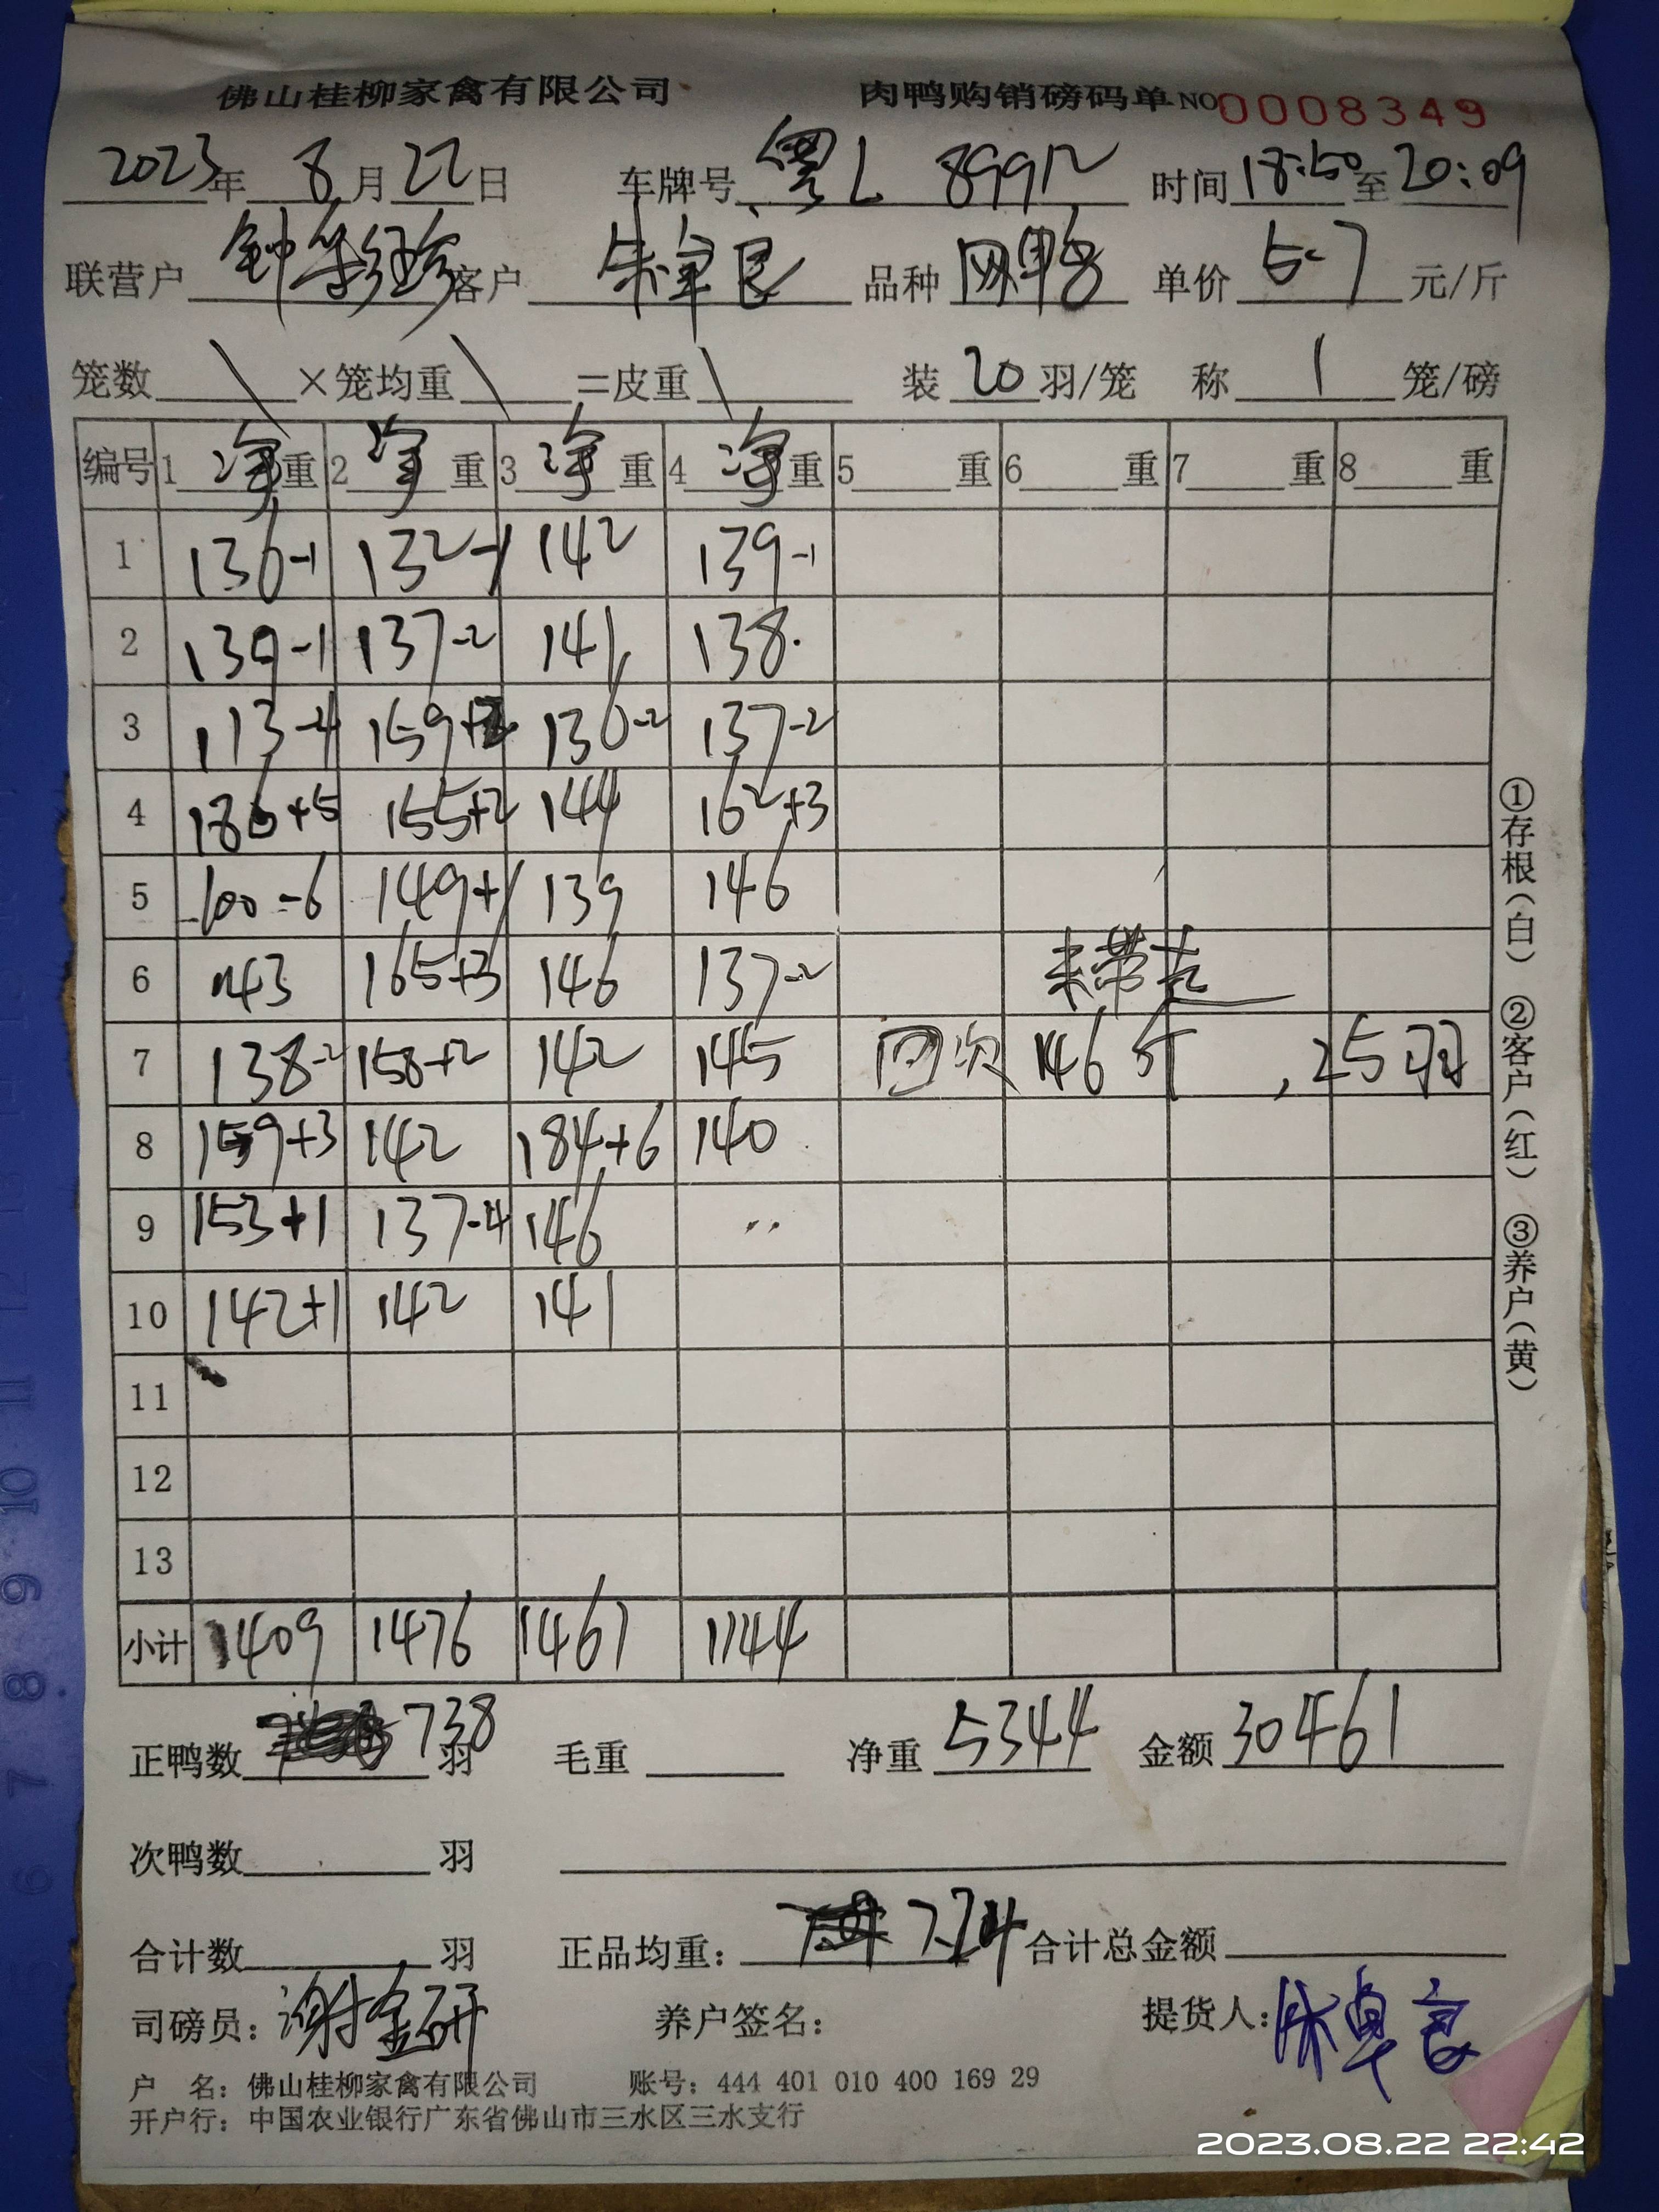 佛山桂柳家禽有限公司 肉鸭购销磅码单 NO 0008349
2023年 8月 22日 车牌号 粤L 899 时间 18:50 至 20:09
联营户 钟 客户 朱卓良 品种 网鸭 单价 5-7 元/斤
笼数 \ ×笼均重 \ =皮重 \ 装 20 羽/笼 称 1 笼/磅
编号 1 净重 2 净重 3 净重 4 净重 5 重 6 重 7 重 8 重
1 136-1 132-1 142 139-1
2 139-1 137-2 141 138.
3 113-4 159+2 136-2 137-2
4 186+5 155+2 144 162+3
5 100-6 149+1 139 146
6 143 165+3 146 137-2 未带走
7 138-2 158+2 142 145 回次 146斤 ,25羽
8 159+3 142 184+6 140
9 153+1 137-4 146
10 142+1 142 141
11
12
13
小计 1409 1476 1461 1144
正鸭数 738 羽 毛重 净重 5344 金额 30461
次鸭数 羽
合计数 羽 正品均重: 7.24 合计总金额
司磅员: 谢金研 养户签名: 提货人: 朱卓良
户 名: 佛山桂柳家禽有限公司 账号: 444 401 010 400 169 29
开户行: 中国农业银行广东省佛山市三水区三水支行
①存根(白) ②客户(红) ③养户(黄)
2023.08.22 22:42